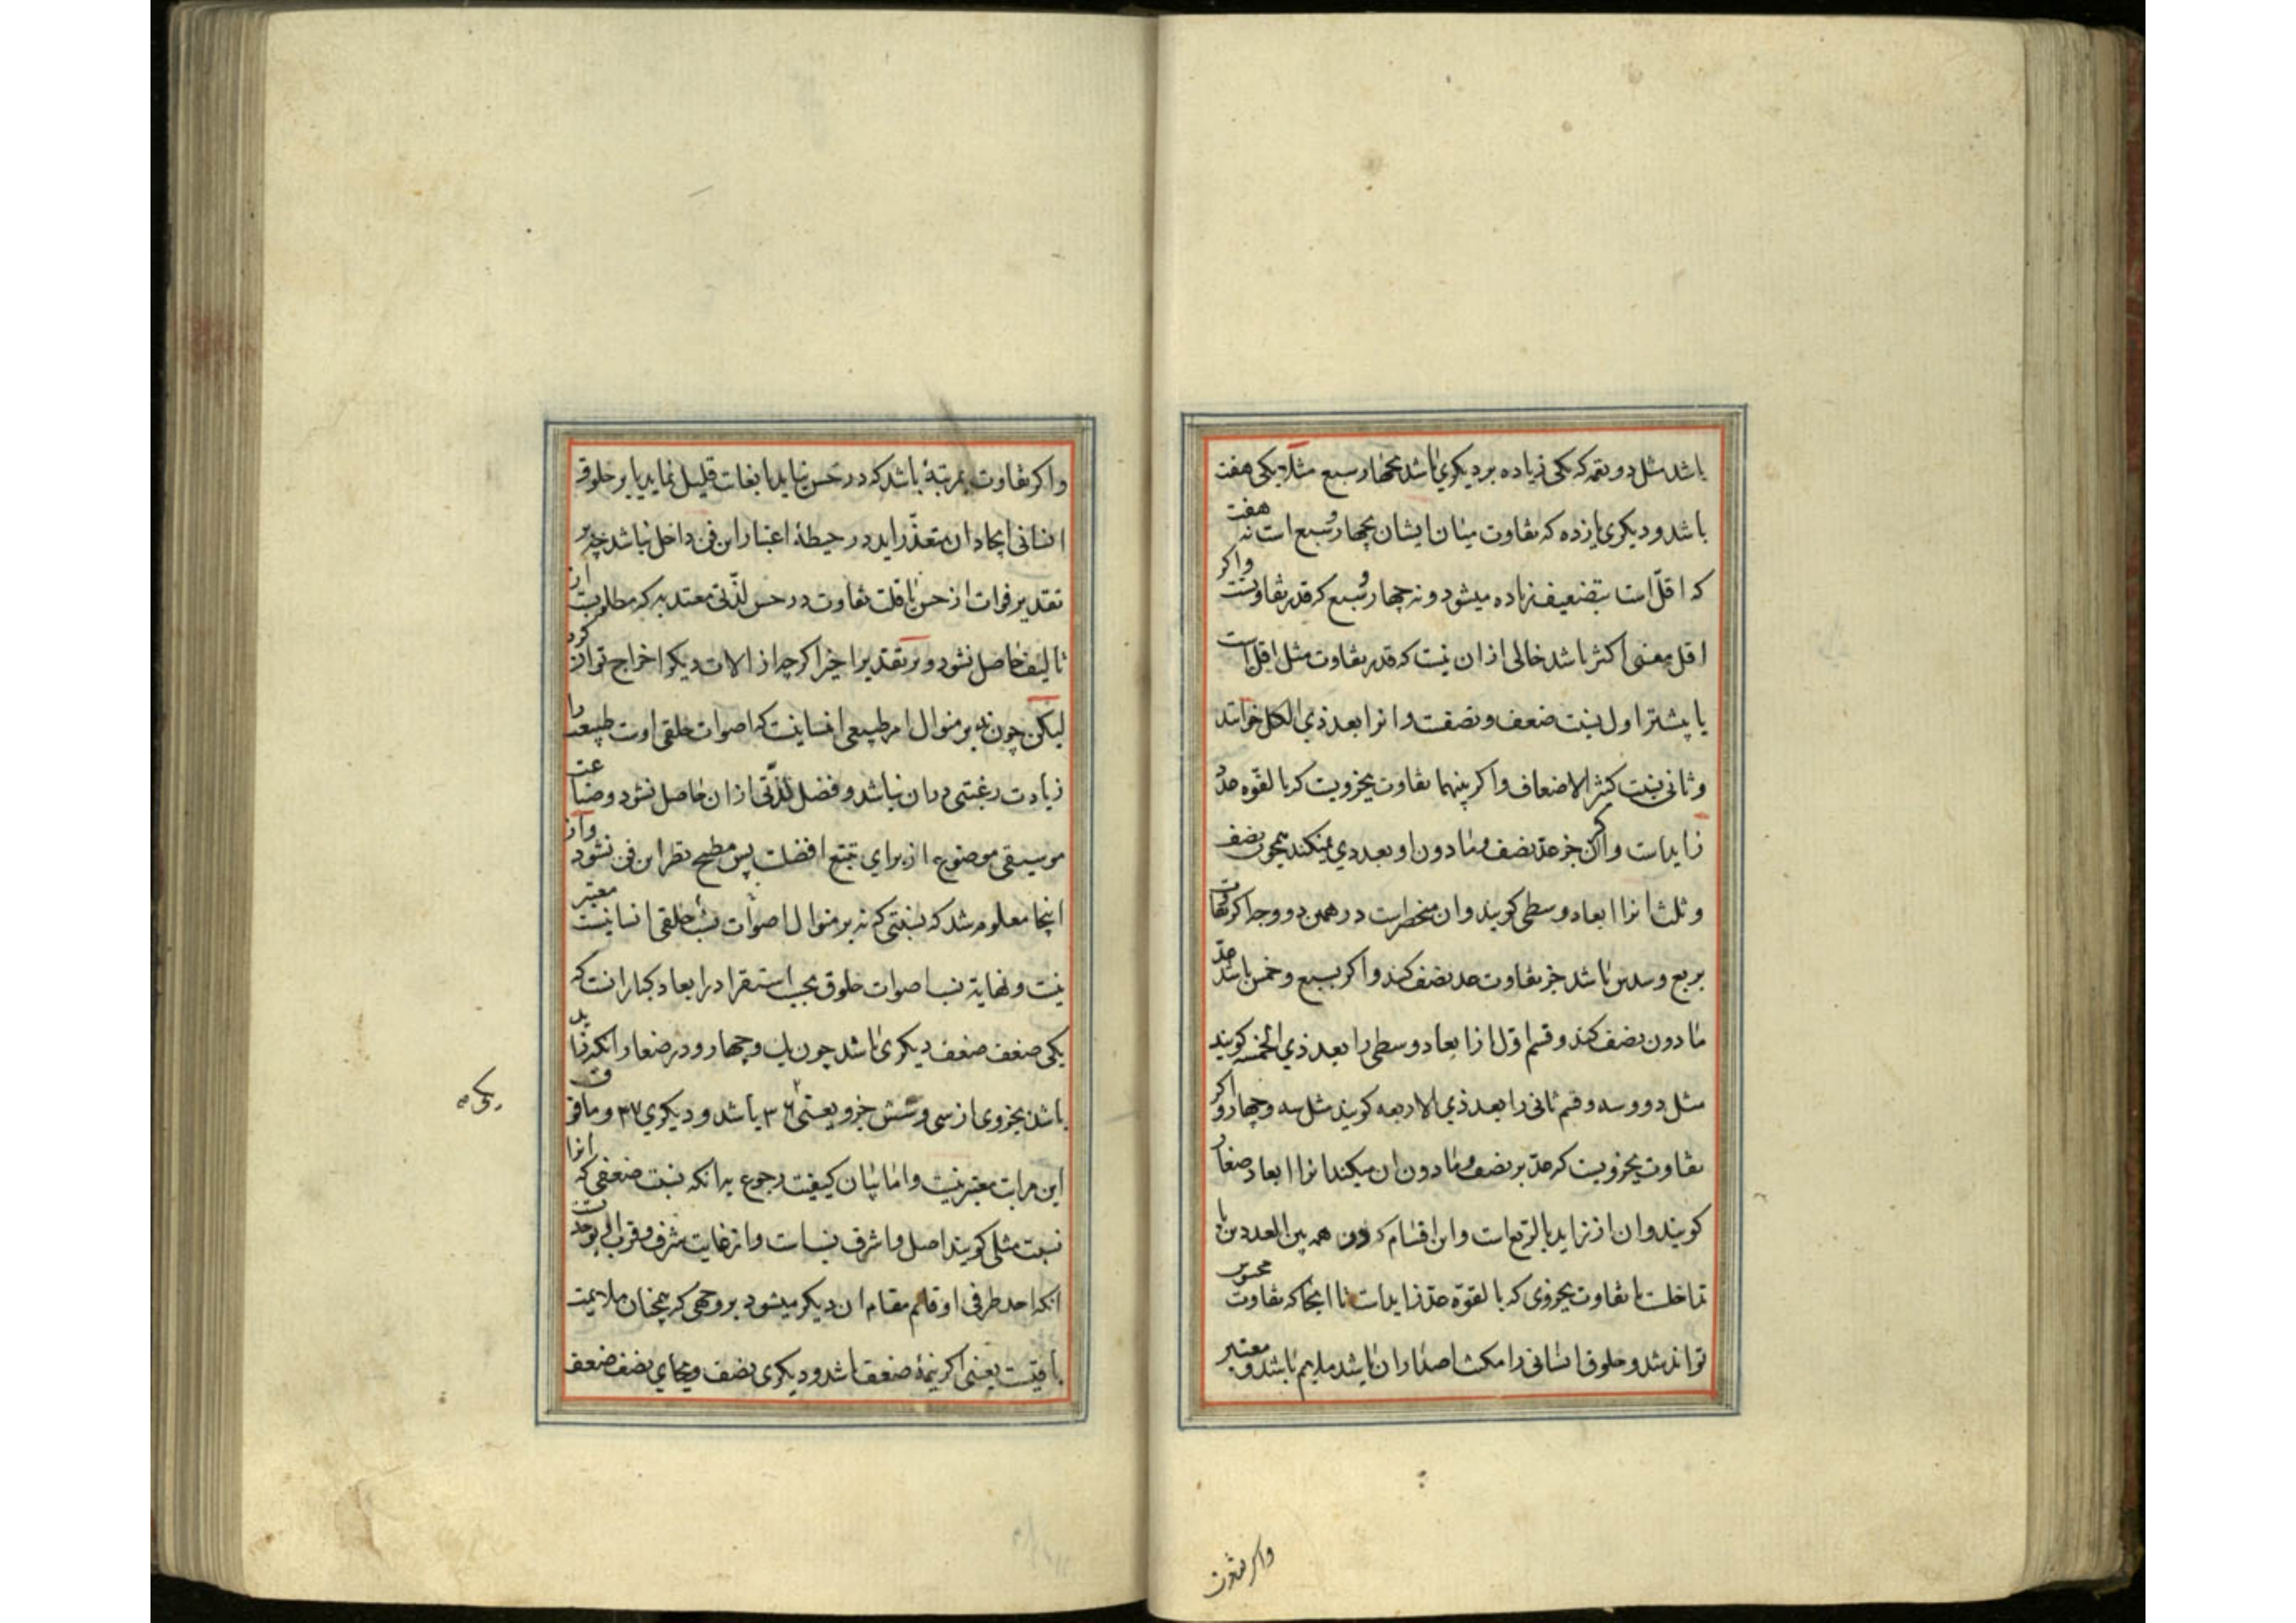 باشد مثل دو نغمه که یکی زیاده بر دیگری باشد بچهار سبع مثلا یکی هفت
باشد و دیگری یازده که تفاوت میان ایشان بچهار سبع است نه هفت
که اقل است بتضعیف زیاده میشود و نه چهار و سبع که قدر تفاوتست واکر
اقل مفنی اکثر باشد خالی از ان نیست که قدر تفاوت مثل اقل است
یا پیشتر اول نسبت ضعف و نصفست و انرا بعد ذی الکل خوانند
و ثانی نسبت کثیر الاضعاف و اکر بینهما تفاوت بجزویست که بالقوه عد
زاید است و اکر ان جز عد نصف و ما دون او بعددی میکند همچون نصف
و ثلث انرا ابعاد وسطی کویند و ان منحصر است در همین دو وجه اکر تفاوت
بربع و سدس باشد جز تفاوت عد نصف کند و اکر بسبع و خمس باشد عد
ما دون نصف کند و قسم اول از ابعاد وسطی را بعد ذی الخمسه کویند
مثل دو و سه و قسم ثانی را بعد ذی الاربعه کویند مثل سه و چهار و اکر
تفاوت بجزویست که عد بر نصف و ما دون ان میکند انرا ابعاد صغار
کویند و ان از زاید بالربع است و این اقسام که دون همه بین العددین یا
تداخلست یا تفاوت بجزوی که بالقوة عد زاید است تا انجا که تفاوت محسوس
تواند شد و حلوق انسانی را مکنت اصدار ان باشد ملایم باشد و معتبر
واکر تفاوت
واکر تفاوت بمرتبهٔ باشد که در حس نیاید یا بغایت قلیل نماید یا بر حلوق
انسانی ایجاد ان متعذر اید در حیطهٔ اعتبار این فن داخل نباشد چه بر
تقدیر فوات از حس یا قلت تفاوت در حس لذتی معتد به که مطلوبست از
تالیف حاصل نشود و بر تقدیر اخیر اکرچه از الات دیکر اخراج توان کرد
لیکن چون نه بر منوال امر طبیعی انسانیت که اصوات حلقی اوست طبیعت را
زیادت رغبتی در ان نباشد و فضل لذتی از ان حاصل نشود و صناعت
موسیقی موضوع از برای تمتع افضلست پس مطمح نظر این فن نشود و از
اینجا معلوم شد که نسبتی که نه بر منوال اصوات نسب حلقی انسانیست معتبر
نیست و نهایة نسب اصوات حلوق بحسب استقرا در ابعاد کبار انست که
یکی ضعف ضعف دیکری باشد چون یک و چهار و در صغار انکه زاید
باشد بجزوی از سی و شش جزو یعنی ۳۶ باشد و دیکری ۳۷ و ما فوق
این مراتب معتبر نیست و اما بیان کیفیت رجوع بدانکه نسبت ضعفی که انرا
نسبت مثلی کویند اصل و اشرف نسبات و از غایت شرف و قرب الی الوحدت
انکه احد طرفی او قایم مقام ان دیکر میشود بر وجهی که همچنان ملایمت
باقیست یعنی اکر نغمهٔ ضعف باشد و دیکری نصف و بجای نصف ضعف